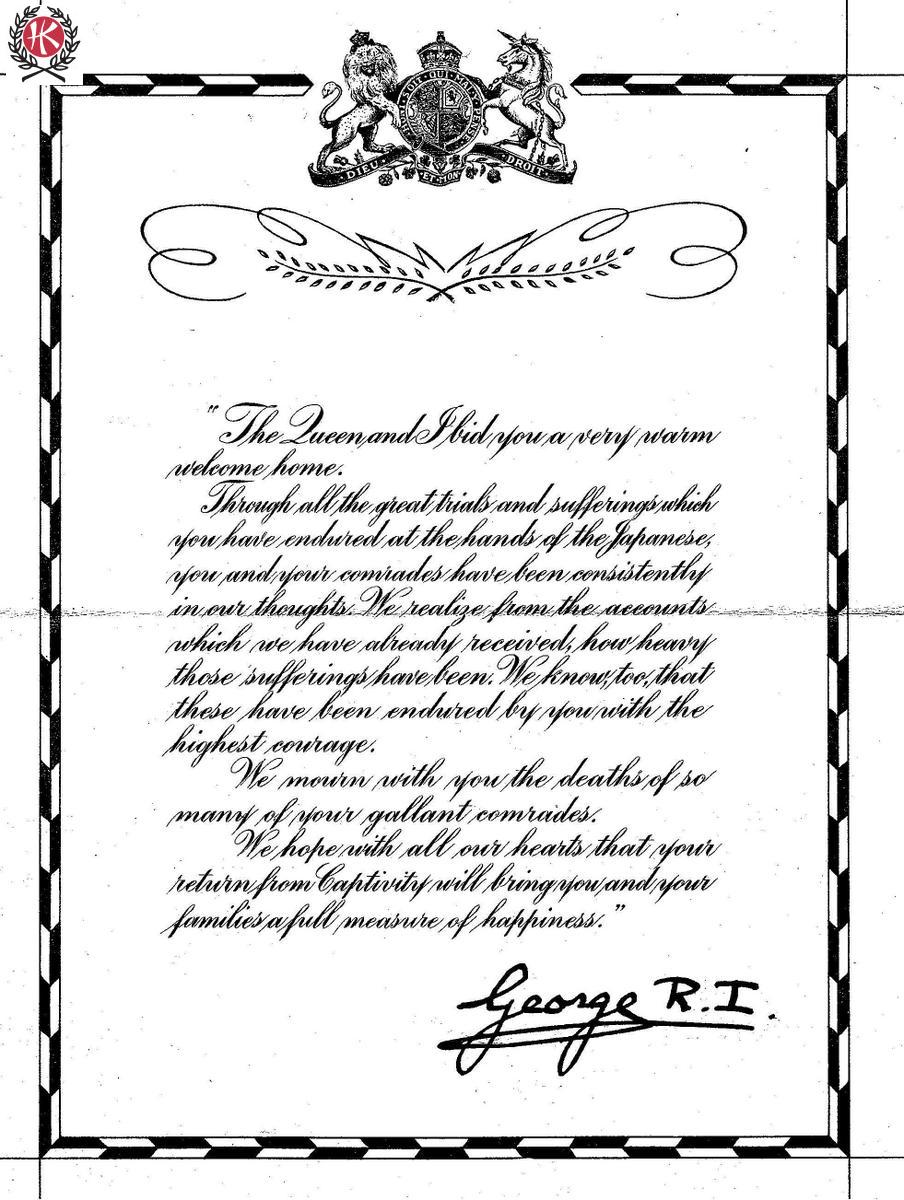 HK
HONI·SOIT·QUI·MAL·Y·PENSE
DIEU·ET·MON·DROIT
"The Queen and I bid you a very warm
welcome home.
Through all the great trials and sufferings which
you have endured at the hands of the Japanese,
you and your comrades have been consistently
in our thoughts. We realize from the accounts
which we have already received, how heavy
those sufferings have been. We know, too, that
these have been endured by you with the
highest courage.
We mourn with you the deaths of so
many of your gallant comrades.
We hope with all our hearts that your
return from Captivity will bring you and your
families a full measure of happiness."
George R.I.